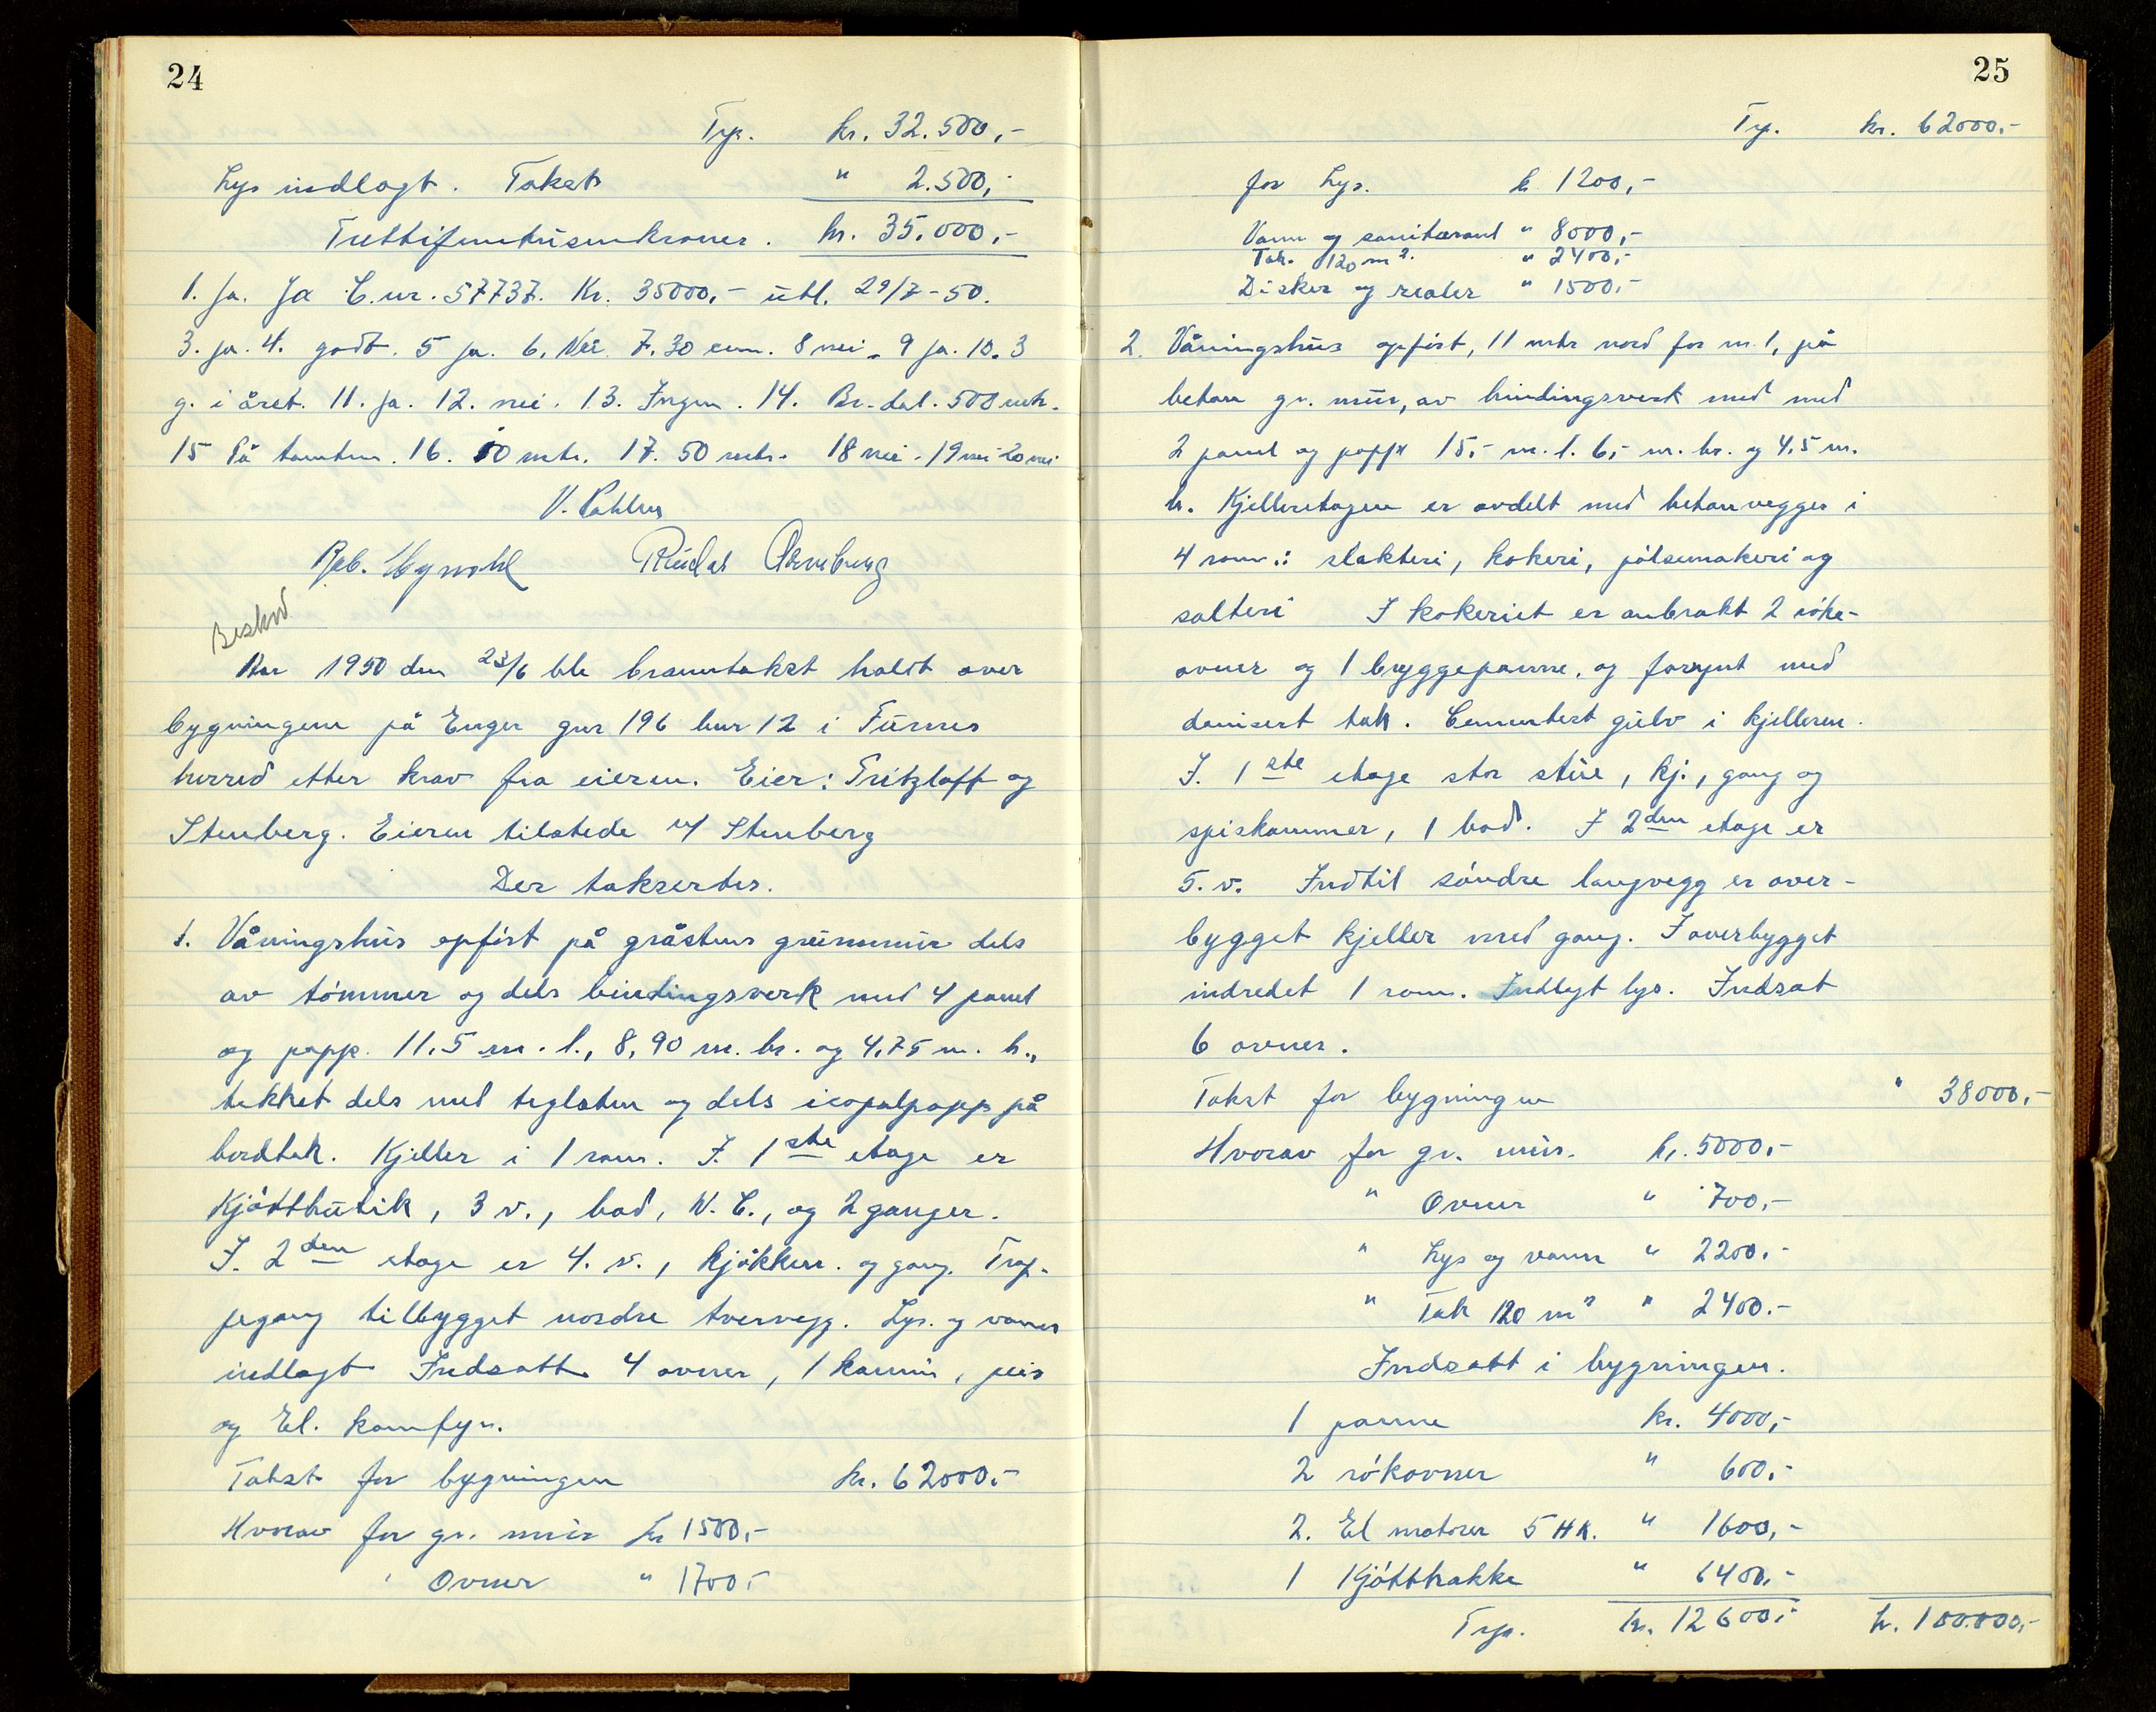 24
Trp. kr. 32.500,-
Lys indlagt. Takst " 2.500,-
Trettifemtusenkroner. kr. 35.000,-
1. Ja. Ja C.nr. 57737. Kr. 35000,- utl. 29/7-50.
3. ja. 4. godt. 5 ja. 6. Nei 7. 30 cm. 8 nei. 9 ja. 10. 3
g. i året. 11. ja. 12. nei. 13. Ingen. 14. Br.dal. 500 mtr.
15 På tomten. 16. 10 mtr. 17. 50 mtr. 18 nei - 19 nei 20 nei
V. Pahlen
Reb. Rudas
Beskrd
Aar 1950 den 23/6 ble branntakst holdt over
bygningene på Enger gnr 196 bnr 12 i Furnes
herred etter krav fra eieren. Eier: Fritzlaff og
Stenberg. Eieren tilstede v/ Stenberg
Der taksertes.
1. Våningshus opført på gråstens grunnmur dels
av tømmer og dels bindingsverk med 4 panel
og papp. 11,5 m. l., 8,90 m. br. og 4,75 m. h.,
tekket dels med teglsten og dels icopalpapp på
bordtak. Kjeller i 1 rom. I. 1ste etage er
Kjøttbutik, 3 v., bad, W.C., og 2 ganger.
I. 2den etage er 4. v., kjøkken. og gang. Trap-
pegang tilbygget nordre tvervegg. Lys. og vann
indlagt Indsatt 4 ovner, 1 kamin, peis
og El. komfyr.
Takst for bygningen kr. 62000,-
Hvorav for gr. mur kr 1500,-
" Ovner " 1700,-
25
Trp. kr. 62000,-
for Lys. kr 1200,-
Vann og sanitæranl " 8000,-
Tak. 120 m2. " 2400,-
Disker og reoler " 1500,-
2. Våningshus opført, 11 mtr nord for nr. 1, på
betong gr. mur, av bindingsverk med med
2 panel og papp 15,- m. l. 6,- m. br. og 4,5 m.
h. Kjelleretagen er avdelt med betonvegger i
4 rom: slakteri, kokeri, pølsemakeri og
salteri I kokeriet er anbrakt 2 røke-
ovner og 1 bryggepanne, og forsynt med
donisert tak. Cementert gulv i kjelleren.
I. 1ste etage stor stue, kj., gang og
spiskammer, 1 bod. I 2den etage er
5. v. Indtil søndre langvegg er over-
bygget kjeller med gang. I overbygget
indredet 1 rom. Indlagt lys. Indsat
6 ovner.
Takst for bygningen " 38000,-
Hvorav for gr. mur. kr. 5000,-
" Ovner " 700,-
" Lys og vann " 2200,-
" Tak 120 m2 " 2400.-
Indsatt i bygningen.
1 panne kr. 4000,-
2 røkovner " 600,-
2. El motorer 5 HK. " 1600,-
1 Kjøtthakke " 6400,-
Trp. kr. 12600,- kr. 100.000,-